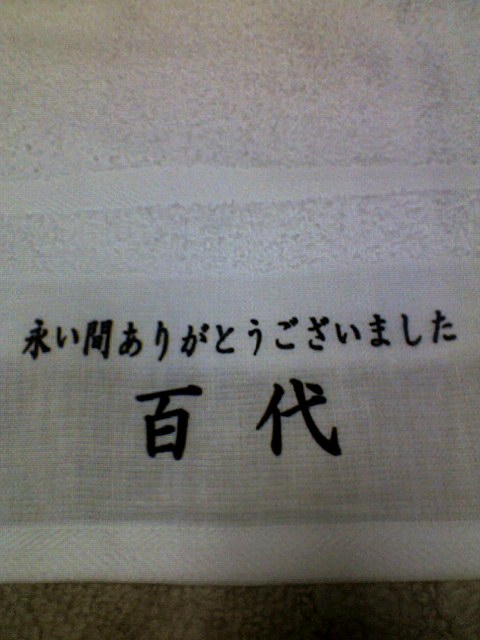 永い間ありがとうございました
百代